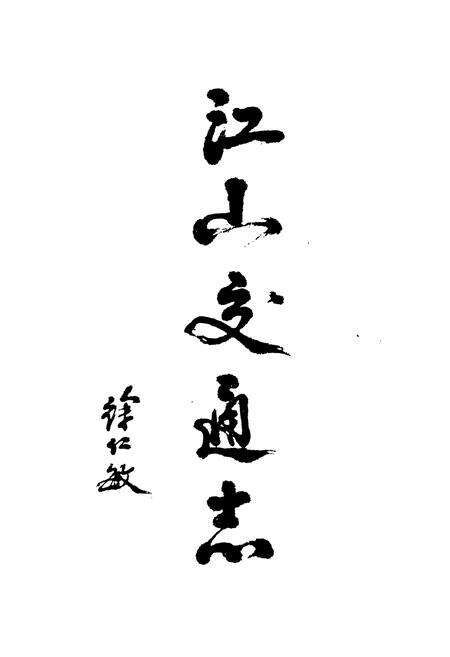 江山交通志
徐仁敏